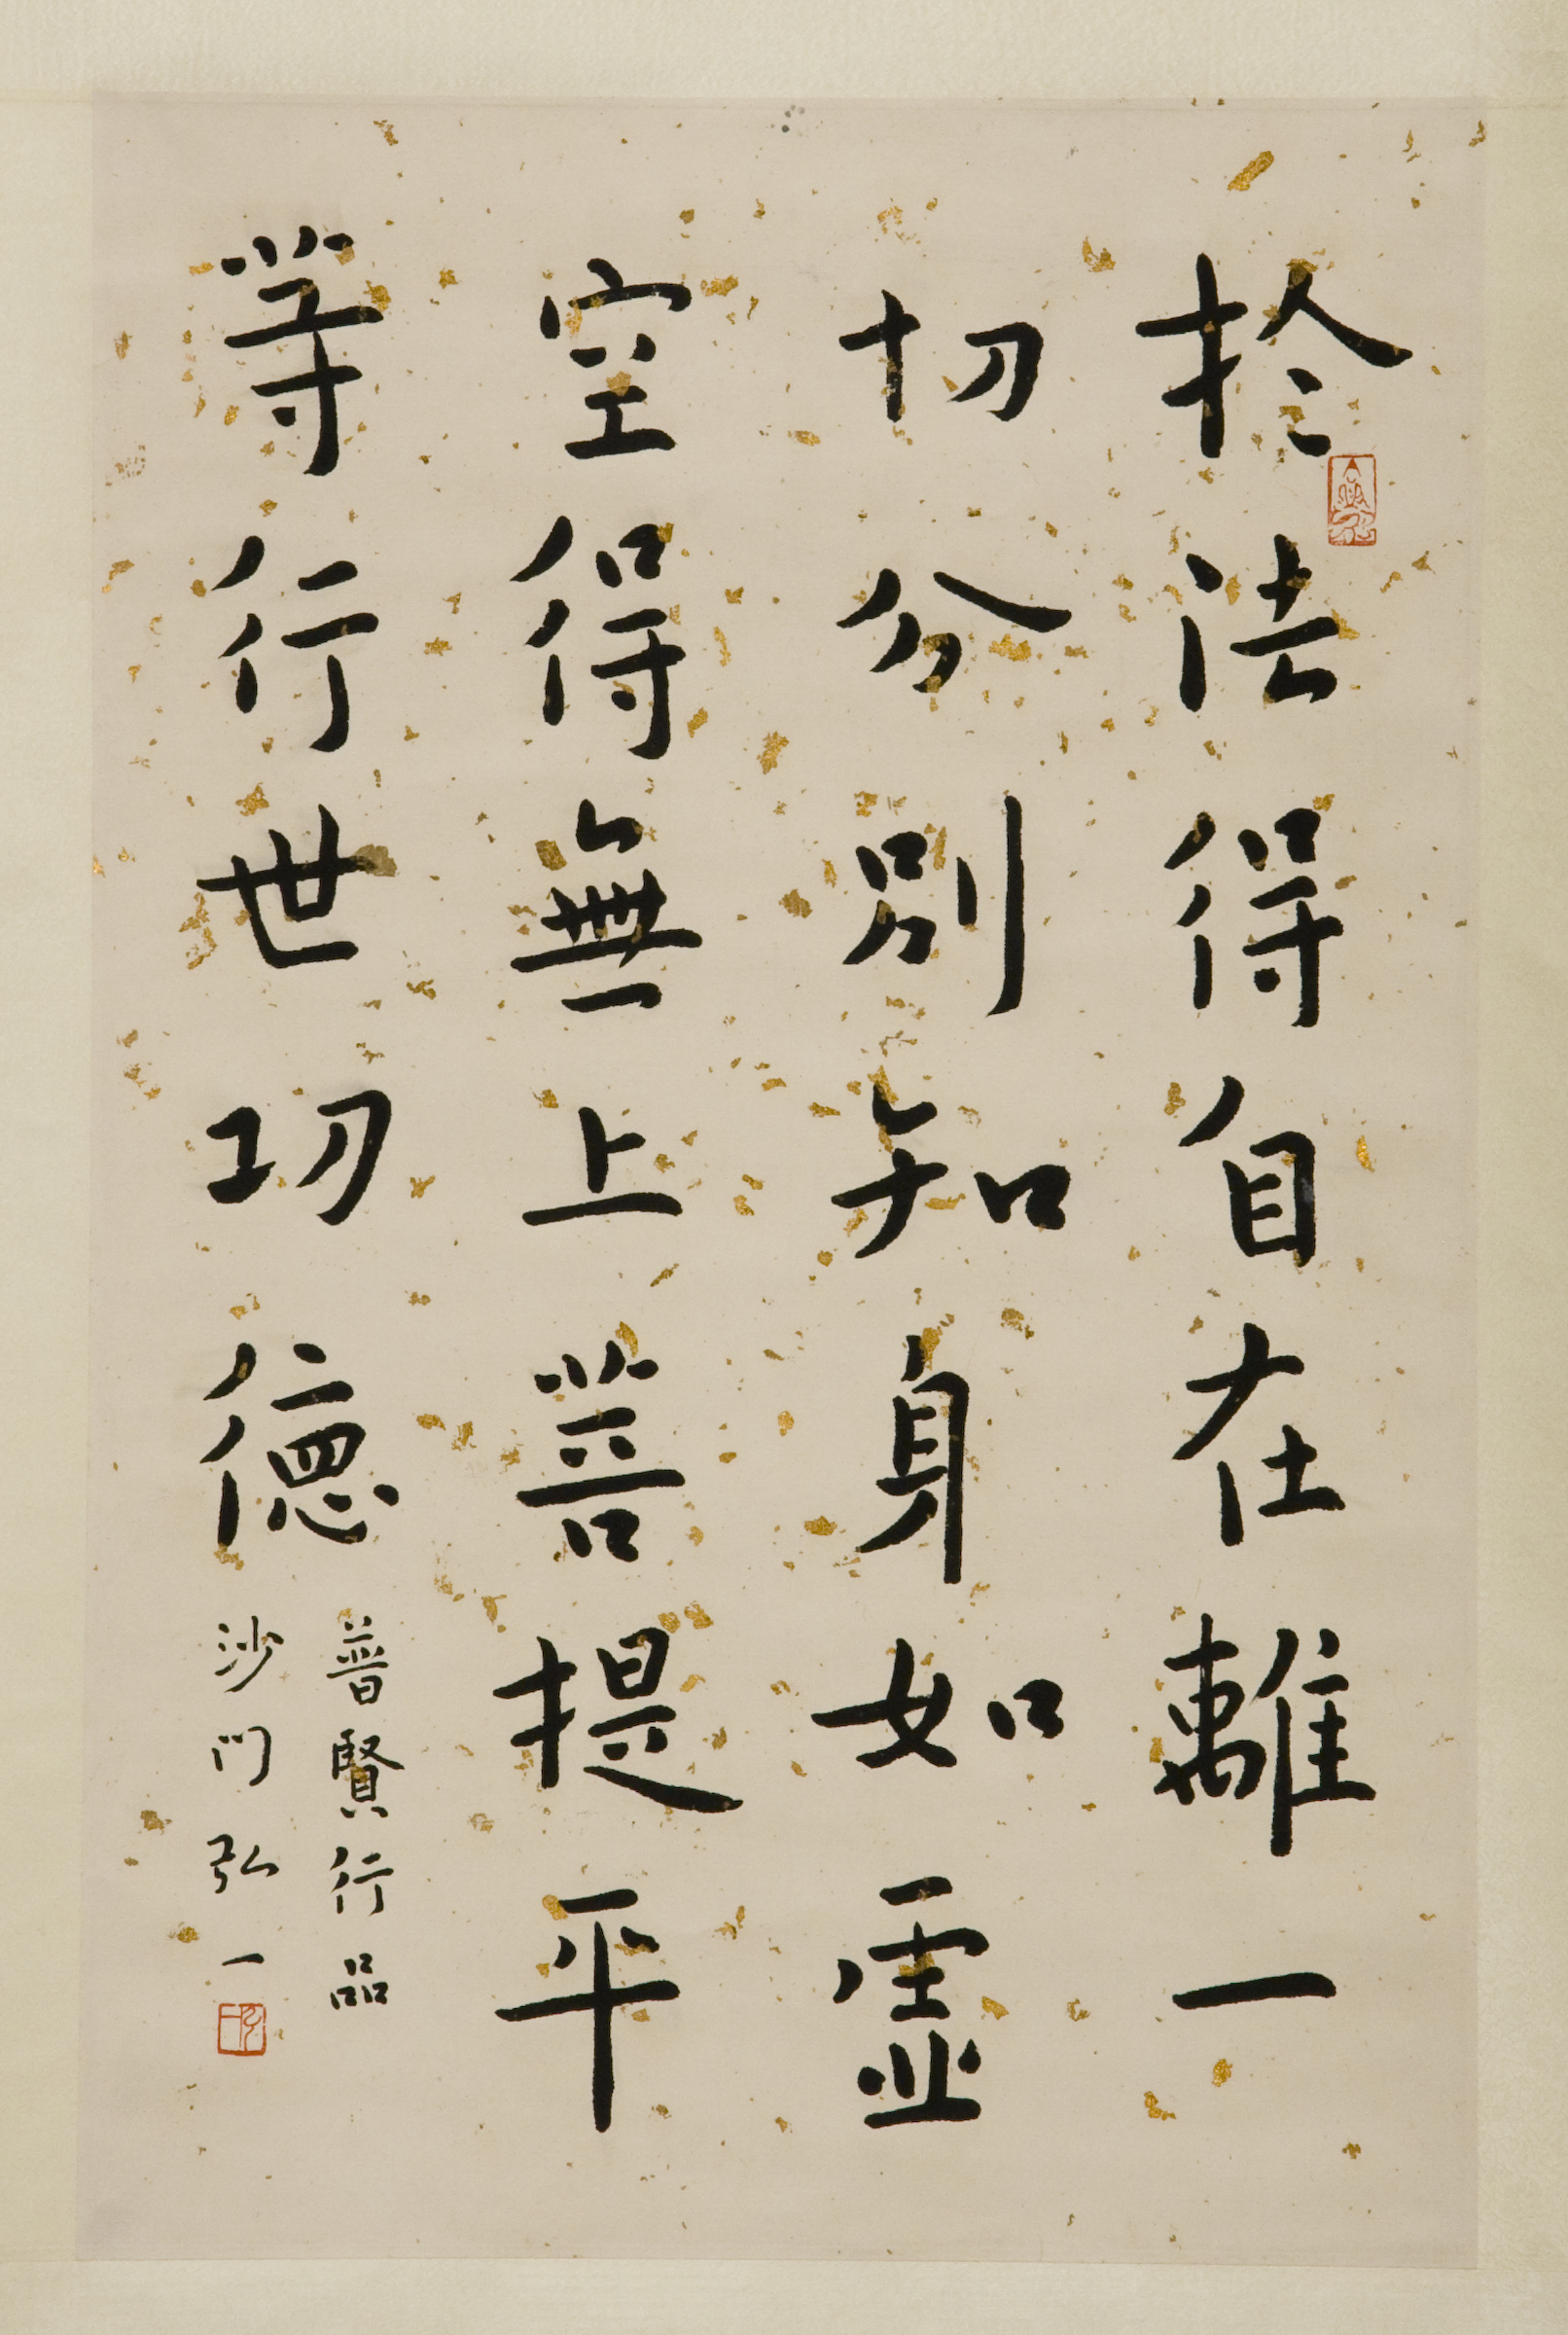 於法得自在離一
切分別知身如虛
空得無上菩提平
等行世功德
普賢行品
沙門弘一